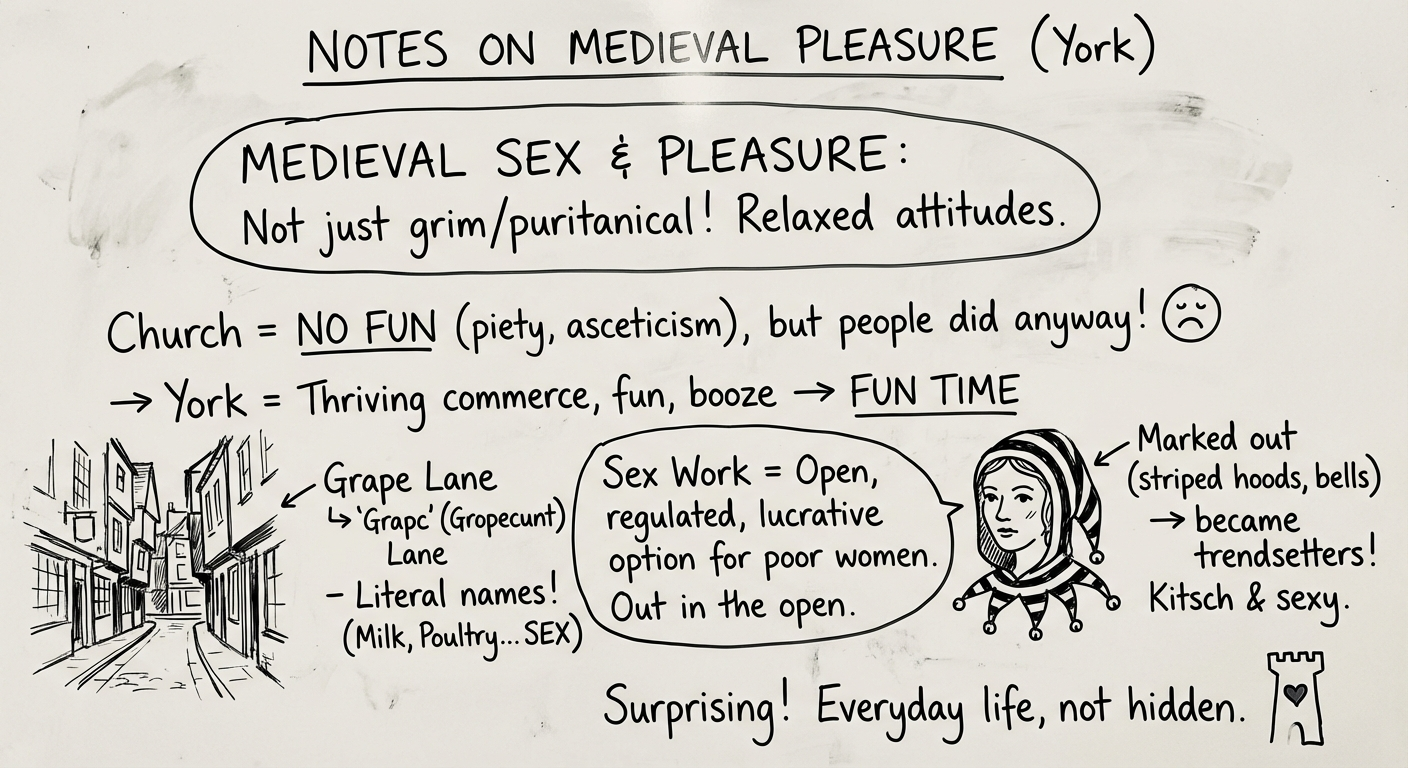 NOTES ON MEDIEVAL PLEASURE (York)
MEDIEVAL SEX & PLEASURE:
Not just grim/puritanical! Relaxed attitudes.
Church = NO FUN (piety, asceticism), but people did anyway!
→ York = Thriving commerce, fun, booze → FUN TIME
Grape Lane
↳ 'Grapc' (Gropecunt)
Lane
– Literal names!
(Milk, Poultry... SEX)
Sex Work = Open,
regulated, lucrative
option for poor women.
Out in the open.
Marked out
(striped hoods, bells)
→ became
trendsetters!
Kitsch & sexy.
Surprising! Everyday life, not hidden.